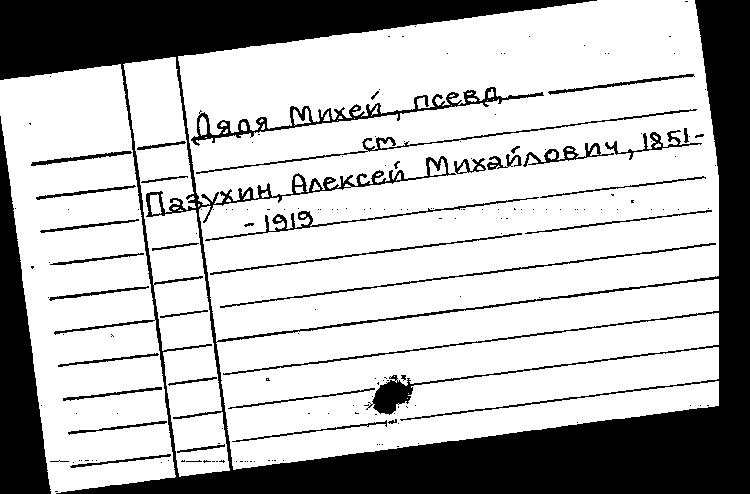 Дядя Михей, псевд.
см.
Пазухин, Алексей Михайлович, 1851-
- 1919